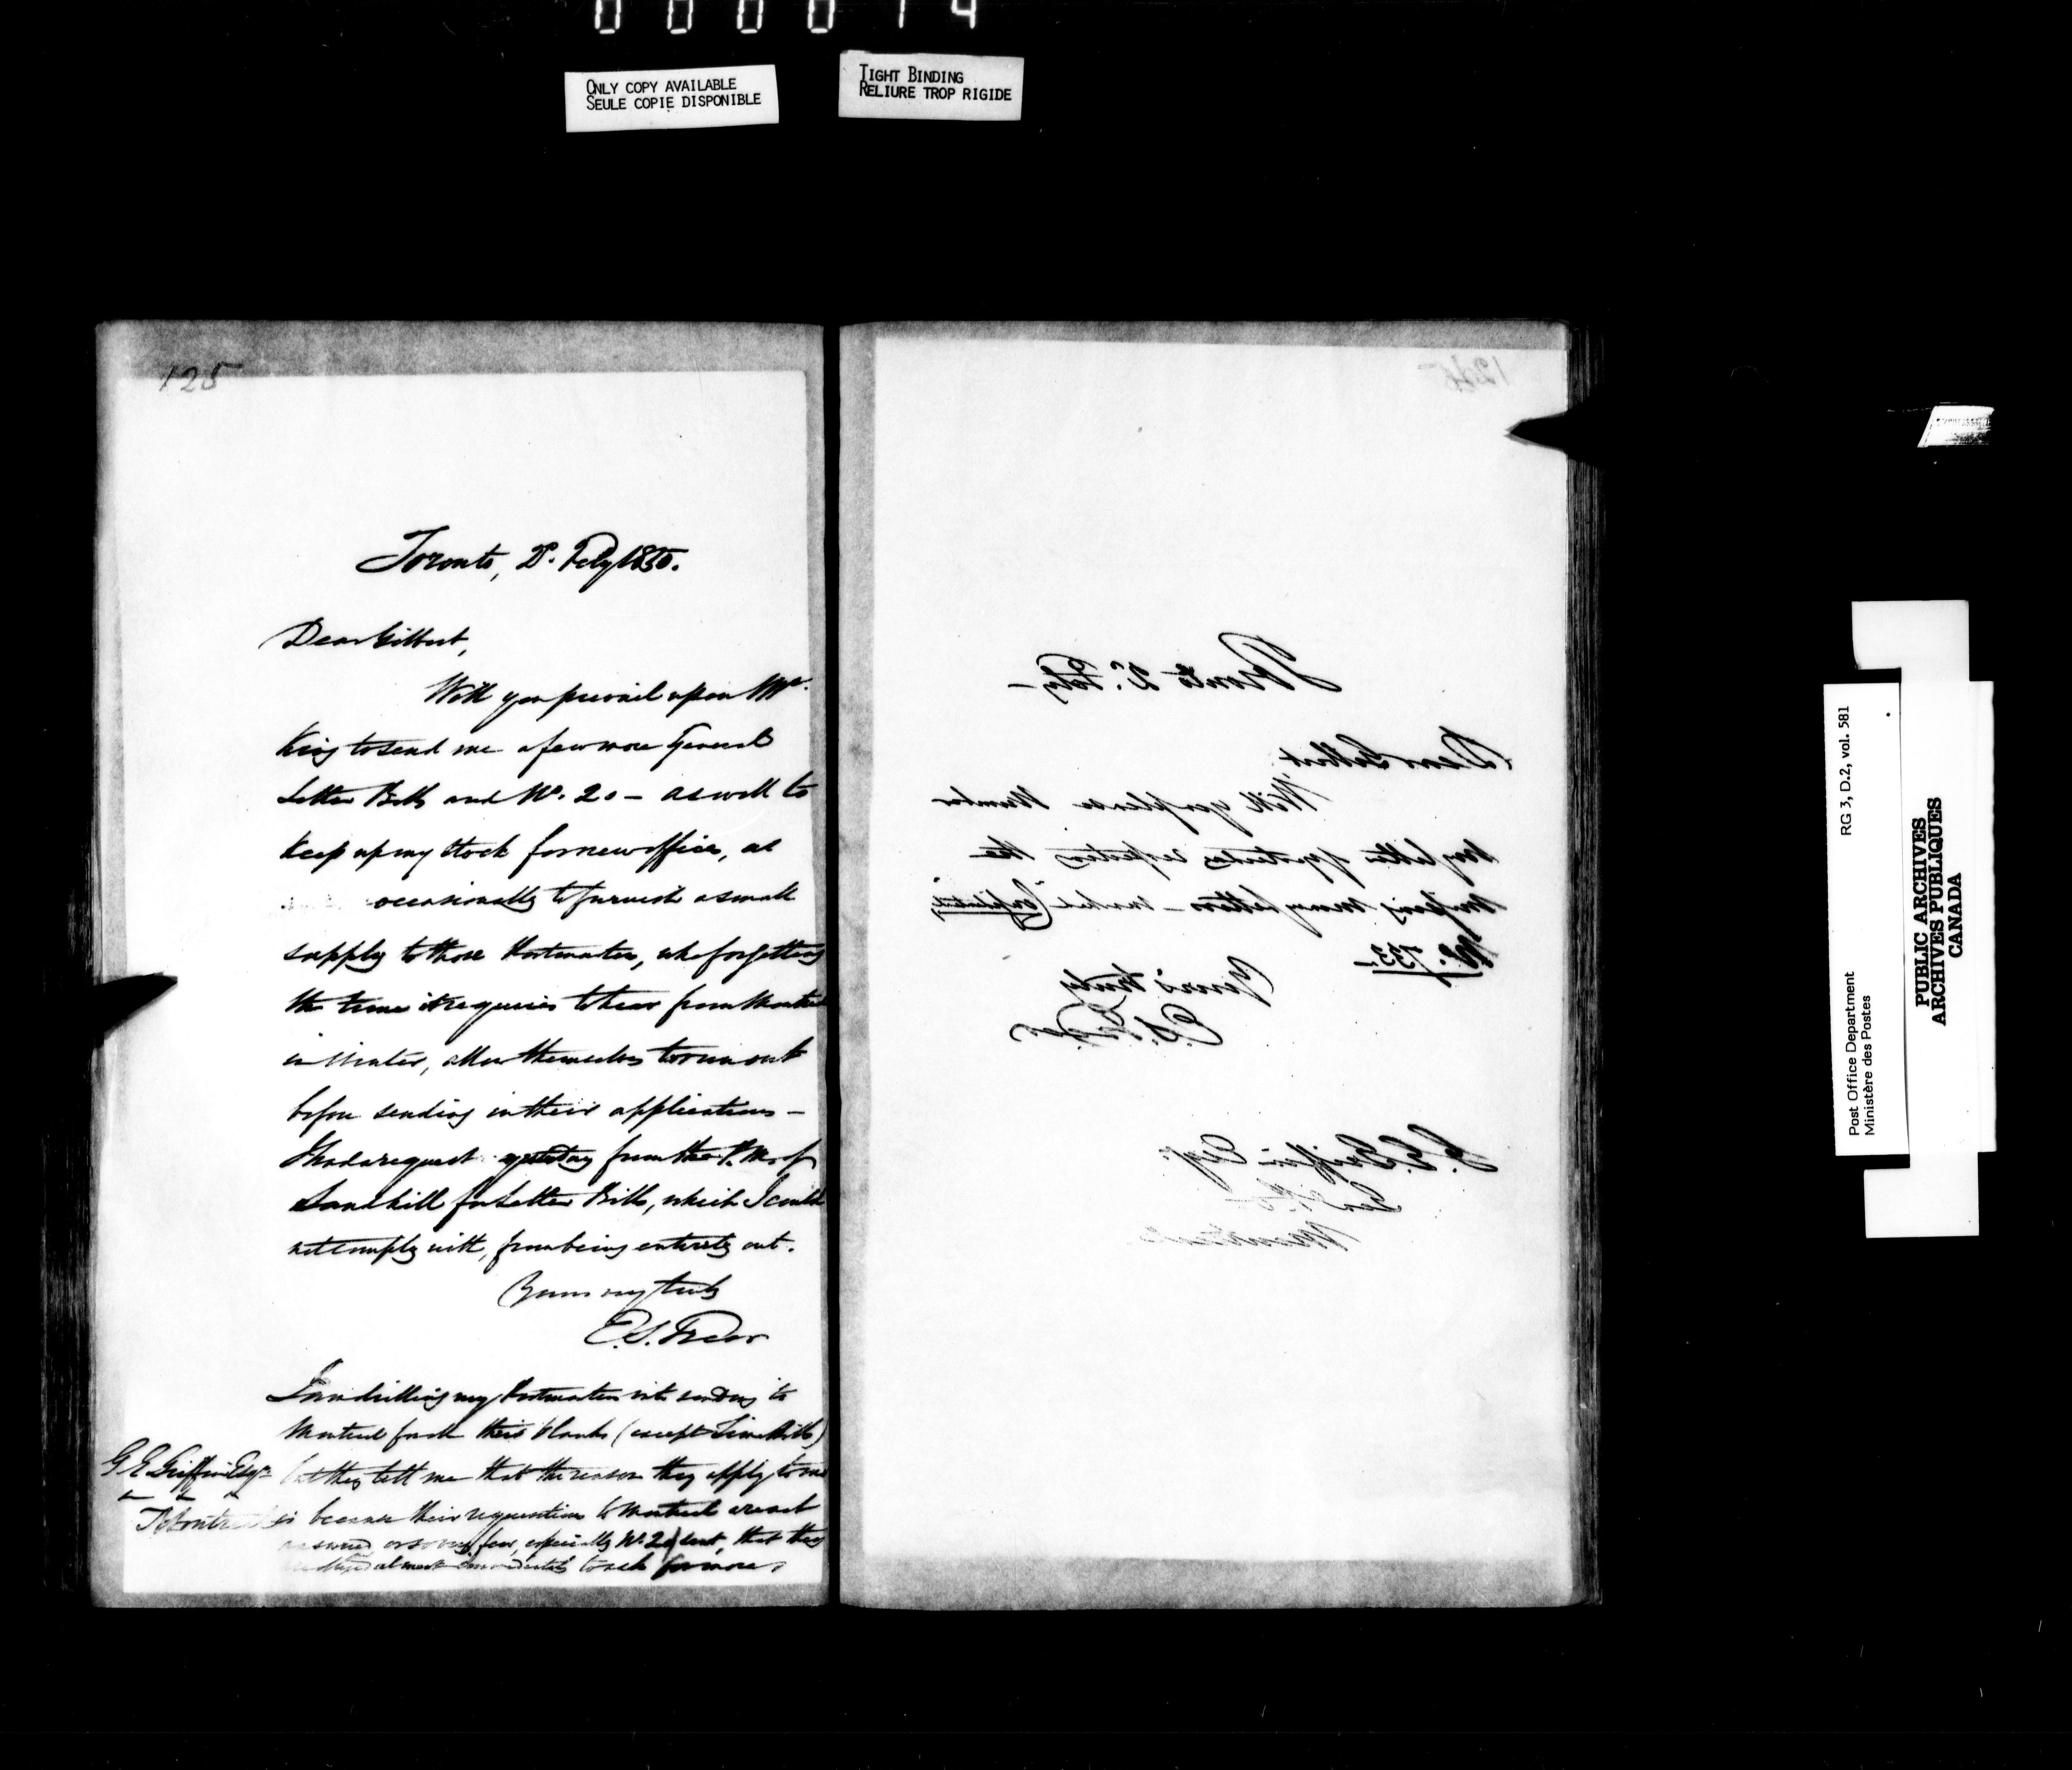 ONLY COPY AVAILABLE
SEULE COPIE DISPONIBLE
TIGHT BINDING
RELIURE TROP RIGIDE
125
Toronto, 2d. Feby 1850.
Dear Gilbert,
Will you prevail upon Mr.
King to send me a few more General
Letter Bills and No. 20 – as well to
keep up my stock for new offices, as
occasionally to furnish a small
supply to those Postmasters, who forgetting
the time it requires to hear from Montreal
in Winter, allow themselves to run out
before sending in their applications –
I had a request yesterday from the P.M. of
Sandhill for Letter Bills, which I could
not comply with, from being entirely out.
Yours very truly
E.S. Freer
I am drilling my Postmasters into sending to
Montreal for all their blanks (except Time Bills)
but they tell me that the reason they apply to me
is because their requisitions to Montreal are not
answered, or so very few, especially No. 20 sent, that they
almost immediately to ask for more.
G E Griffin Esqr
Montreal
Toronto 2d. Feby –
Dear Gilbert
Will you please number
my letter of yesterday respecting the
missing money letters – marked "Confidential"
No. 733.
Yours truly
E.S. Freer
G. E. Griffin Esqr.
Genl P.O.
Montreal
Post Office Department
Ministère des Postes
RG 3, D.2, vol. 581
PUBLIC ARCHIVES
ARCHIVES PUBLIQUES
CANADA